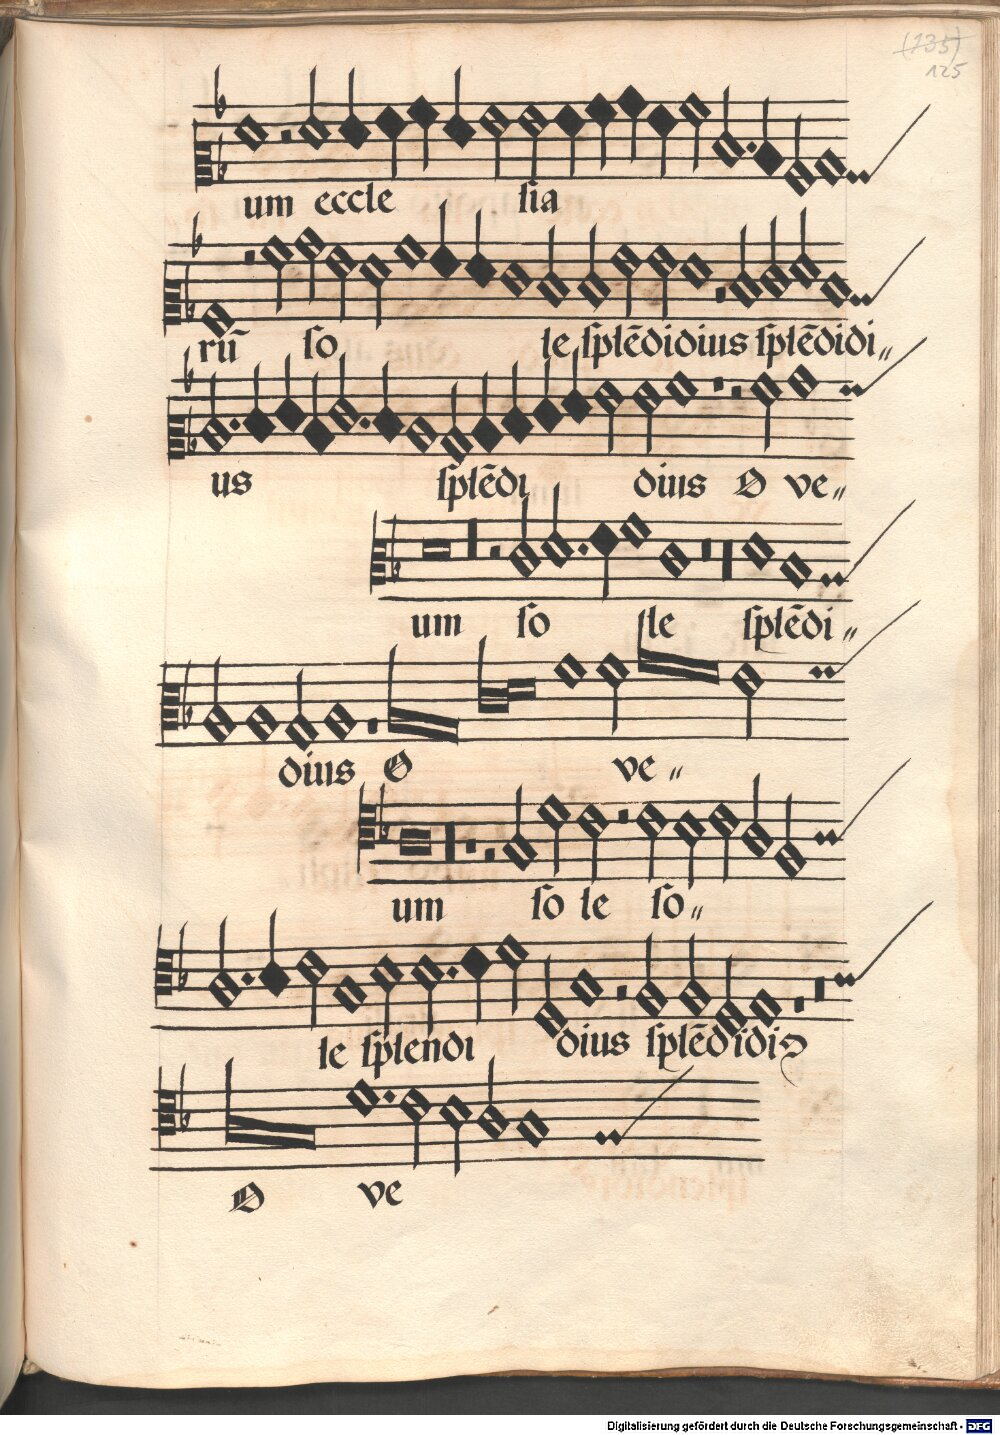 (135)
125
um eccle sia
rū so le splēdidius splēdidi„
us splēdi dius O ve„
um so le splēdi„
dius O ve„
um so le so„
le splendi dius splēdidi9
O ve
Digitalisierung gefördert durch die Deutsche Forschungsgemeinschaft - DFG